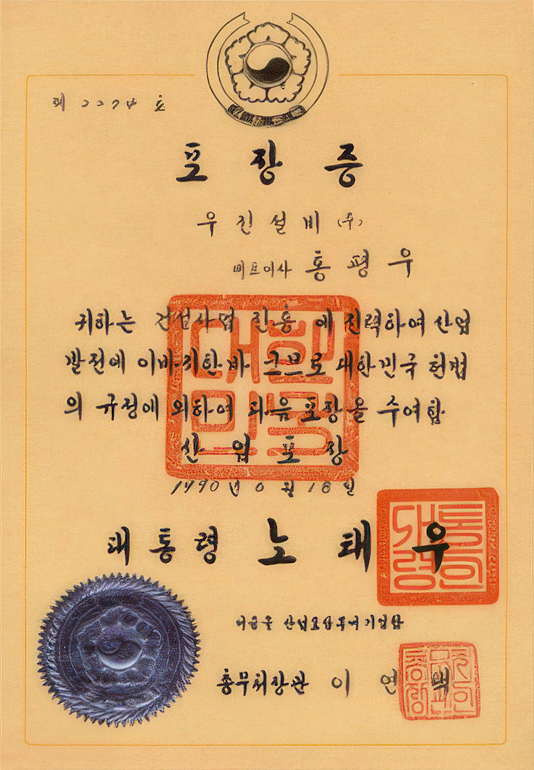 제 2274 호
포장증
우진설비(주)
대표이사 홍평우
귀하는 건설사업 진흥에 진력하여 산업
발전에 이바지한바 크므로 대한민국 헌법
의 규정에 의하여 다음 포장을 수여함
산업포장
1990년 6월 18일
대통령 노태우
이를 산업포장부에 기입함
총무처장관 이연택